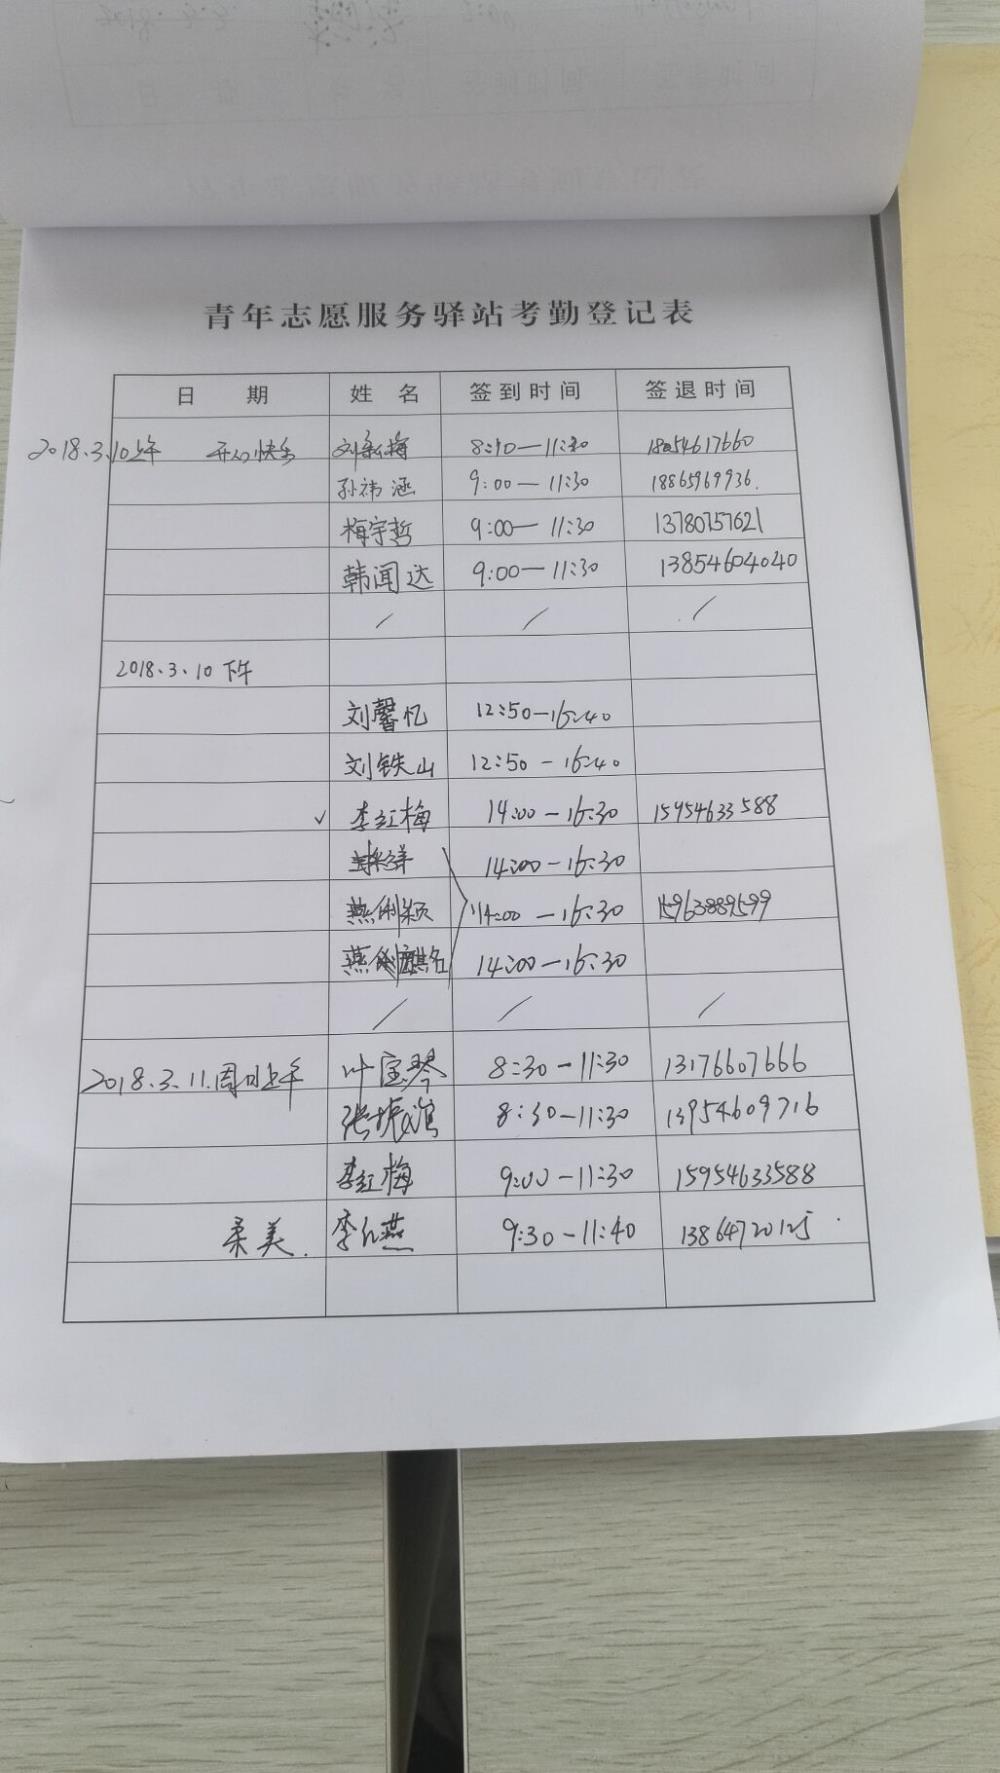 青年志愿服务驿站考勤登记表
日 期 姓 名 签到时间 签退时间
2018.3.10上午 开心快乐 刘新梅 8:10—11:30 18054617660
孙祎涵 9:00—11:30 18865969936.
梅宇哲 9:00—11:30 13780757621
韩闻达 9:00—11:30 13854604040
/ / /
2018.3.10下午
刘馨忆 12:50—16:40
刘铁山 12:50-16:40
✓ 李红梅 14:00—16:30 15954633588
14:00—16:30
燕俐颖 14:00—16:30 15963889599
14:00—16:30
/ / /
2018.3.11.周日上午 叶宝琴 8:30-11:30 13176607666
8:30-11:30 13954609716
李红梅 9:00-11:30 15954633588
柔美. 李仁燕 9:30-11:40 13864720125